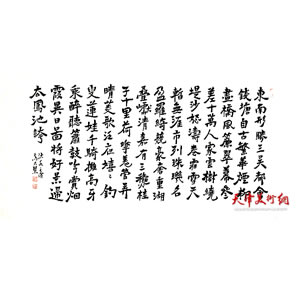 東南形勝三吳都會
錢塘自古繁華煙柳
畫橋風簾翠幕參
差十萬人家雲樹繞
堤沙怒濤卷霜雪天
塹無涯市列珠璣戶
盈羅綺競豪奢重湖
疊巘清嘉有三秋桂
子十里荷花羌管弄
晴菱歌泛夜嬉嬉釣
叟蓮娃千騎擁高牙
乘醉聽簫鼓吟賞煙
霞異日圖將好景歸
去鳳池誇
天津美术网